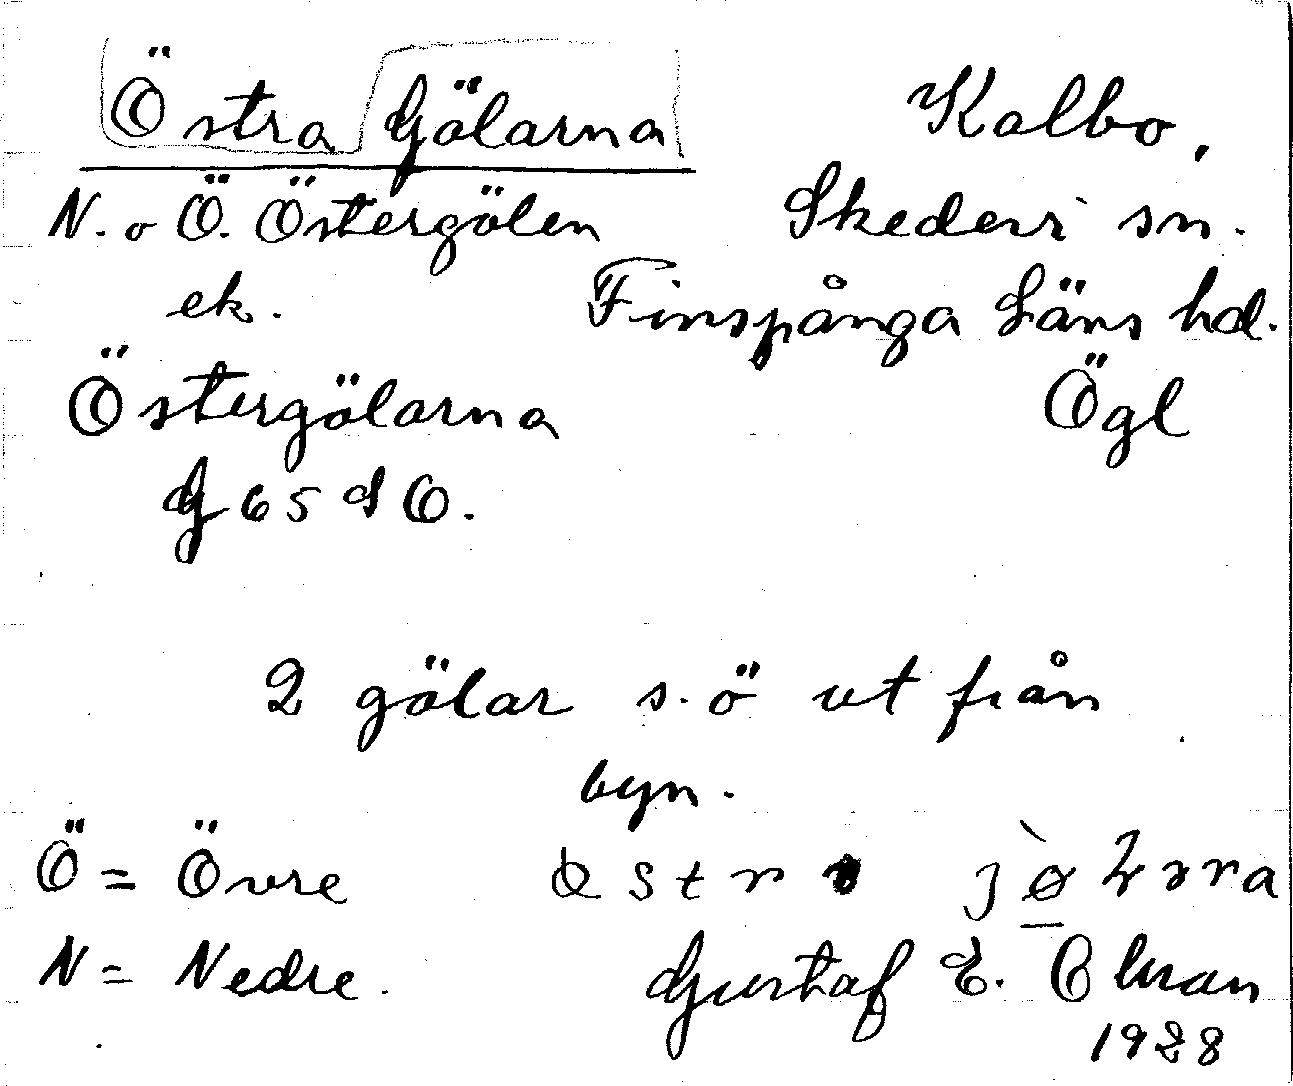 Östra Gölarna
Kalbo,
N. o Ö. Östergölen
Skedevi sn.
ek.
Finspånga Läns hd.
Östergölarna
Ögl
G 65 d O.
2 gölar s. ö ut från
byn.
Ö = Övre
N = Nedre.
Gustaf E.
1928